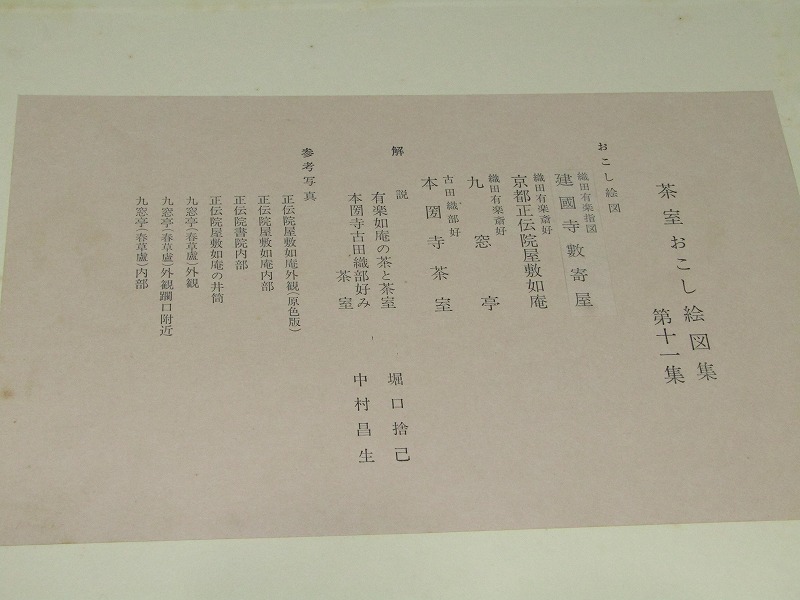 茶室おこし絵図集
第十一集
おこし絵図
織田有楽指図
建國寺數寄屋
織田有楽斎好
京都正伝院屋敷如庵
織田有楽斎好
九窓亭
古田織部好
本圀寺茶室
解説
有楽如庵の茶と茶室 堀口捨己
本圀寺古田織部好み
茶室 中村昌生
参考写真
正伝院屋敷如庵外観(原色版)
正伝院屋敷如庵内部
正伝院書院内部
正伝院屋敷如庵の井筒
九窓亭(春草盧)外観
九窓亭(春草盧)外観躙口附近
九窓亭(春草盧)内部